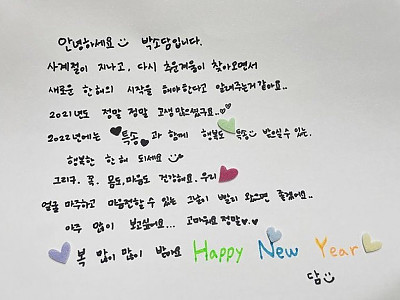 안녕하세요 박소담입니다.
사계절이 지나고, 다시 추운겨울이 찾아오면서
새로운 한해의 시작을 해야한다고 알려주는거 같아요..
2021년도 정말 정말 고생 많으셨구요..
2022년에는 특송과 함께 행복도 특송 받으실수 있는.
행복한 한 해 되세요
그리구. 꼭. 몸도, 마음도 건강해요. 우리
얼굴 마주하고 마음전할수 있는 그날이 빨리 왔으면 좋겠어요..
아주 많이 보고싶어요... 고마워요 정말
복 많이 많이 받아요 Happy New Year
담